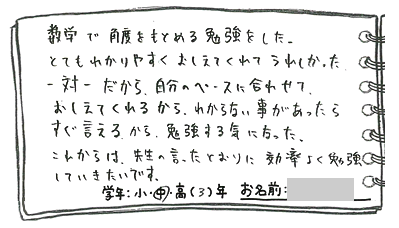 数学で角度をもとめる勉強をした。
とてもわかりやすくおしえてくれてうれしかった
一対一だから、自分のペースに合わせて、
おしえてくれるから、わからない事があったら
すぐ言えるから、勉強する気になった。
これからは、先生の言ったとおりに効率よく勉強
していきたいです。
学年:小・中・高(3)年 お名前: